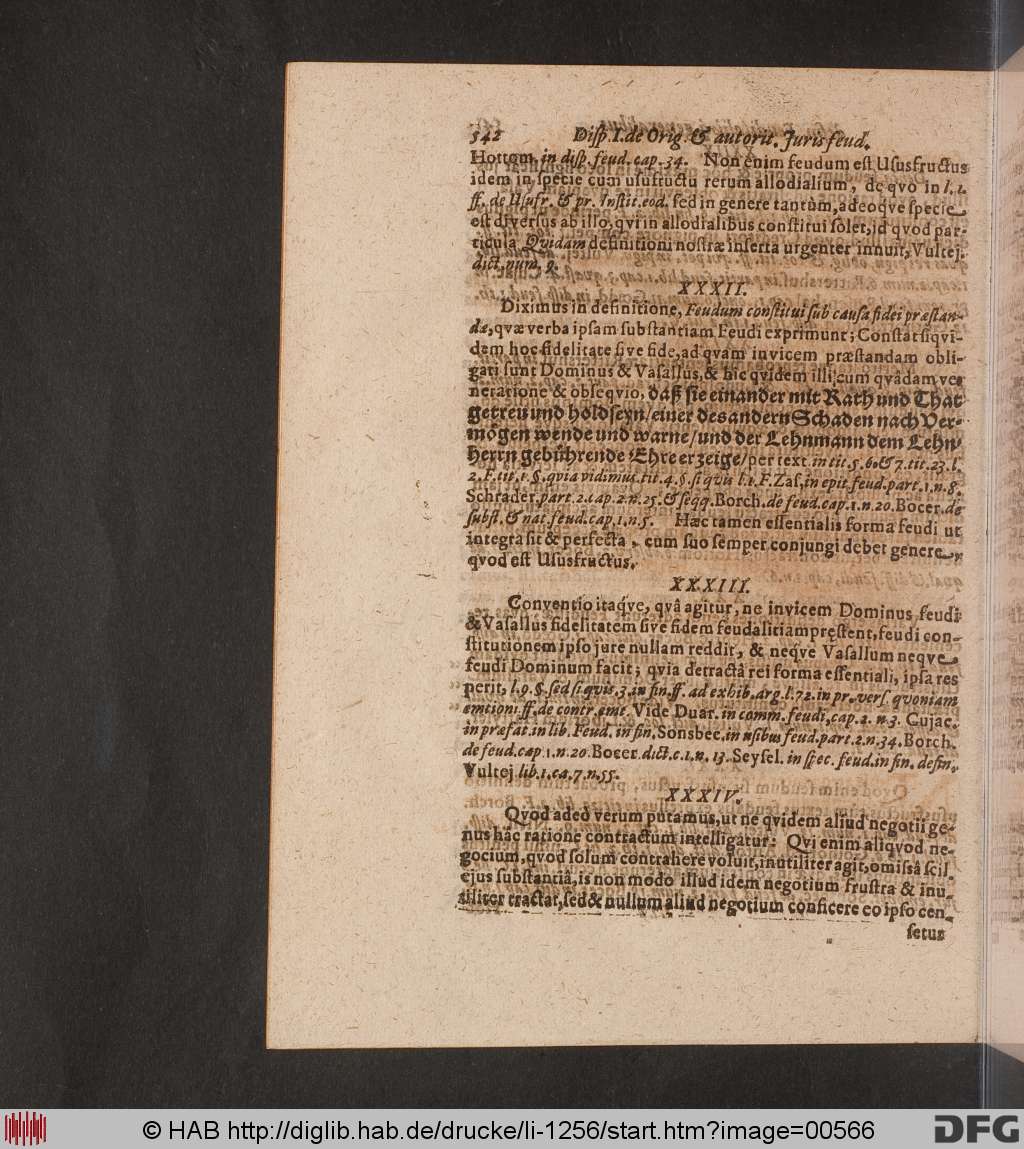 542 Disp. I. de Orig. & autorit. Juris feud.
Hottom. in disp. feud. cap. 34. Non enim feudum est Ususfructus
idem in specie cum usufructu rerum allodialium, de qvo in l. 1.
ff. de Usufr. & pr. Instit. eod. sed in genere tantùm, adeoq́ve specie
est diversus ab illo, qvi in allodialibus constitui solet, id qvod par-
ticula Qvidam definitioni nostræ inserta urgenter innuit, Vultej.
dict. num. 9.
XXXII.
Diximus in definitione, Feudum constitui sub causa fidei præstan-
dæ, qvæ verba ipsam substantiam Feudi exprimunt; Constat siqvi-
dem hoc fidelitate sive fide, ad qvam invicem præstandam obli-
gati sunt Dominus & Vasallus, & hic qvidem illi cum qvâdam ve-
neratione & obseqvio, daß sie einander mit Rath und That
getreu und hold seyn/ einer des andern Schaden nach Ver-
mögen wende und warne/ und der Lehnmann dem Lehn-
Herrn gebührende Ehre erzeige/ per text. in tit. 5. 6. & 7. tit. 23. l.
2. F. tit. 1. §. qvia vidimus. tit. 4. §. si qvis l. 1. F. Zas, in epit. feud. part. 1. n. 8.
Schrader. part. 2. cap. 2. n. 25. & seqq. Borch. de feud. cap. 1. n. 20. Bocer. de
subst. & nat. feud. cap. 1. n. 5. Hæc tamen essentialis forma feudi ut
integra sit & perfecta, cum suo semper conjungi debet genere,
qvod est Ususfructus.
XXXIII.
Conventio itaq́ve, qvâ agitur, ne invicem Dominus feudi
& Vasallus fidelitatem sive fidem feudalitiam pręstent, feudi con-
stitutionem ipso jure nullam reddit, & neqve Vasallum neqve
feudi Dominum facit; qvia detractâ rei forma essentiali, ipsa res
perit, l. 9. §. sed si qvis. 3. in fin. ff. ad exhib. arg. l. 72. in pr. vers. qvoniam
emtioni ff. de contr. emt. Vide Duar. in comm. feudi, cap. 2. n. 3. Cujac.
in præfat. in lib. Feud. in fin. Sonsbec. in usibus feud. part. 2. n. 34. Borch.
de feud. cap 1. n. 20 Bocer. dict. c. 1. n. 13. Seysel. in spec. feud. in fin. defin.
Vultej lib. 1. ca. 7. n. 55.
XXXIV.
Qvod adeò verum putamus, ut ne qvidem aliud negotii ge-
nus hâc ratione contractum intelligatur: Qvi enim aliqvod ne-
gocium, qvod solum contrahere voluit, inutiliter agit, omissâ scil.
ejus substantiâ, is non modo illud idem negotium frustra & inu
tiliter tractat, sed & nullum aliud negotium conficere eo ipso cen-
setur
© HAB http://diglib.hab.de/drucke/li-1256/start.htm?image=00566
DFG